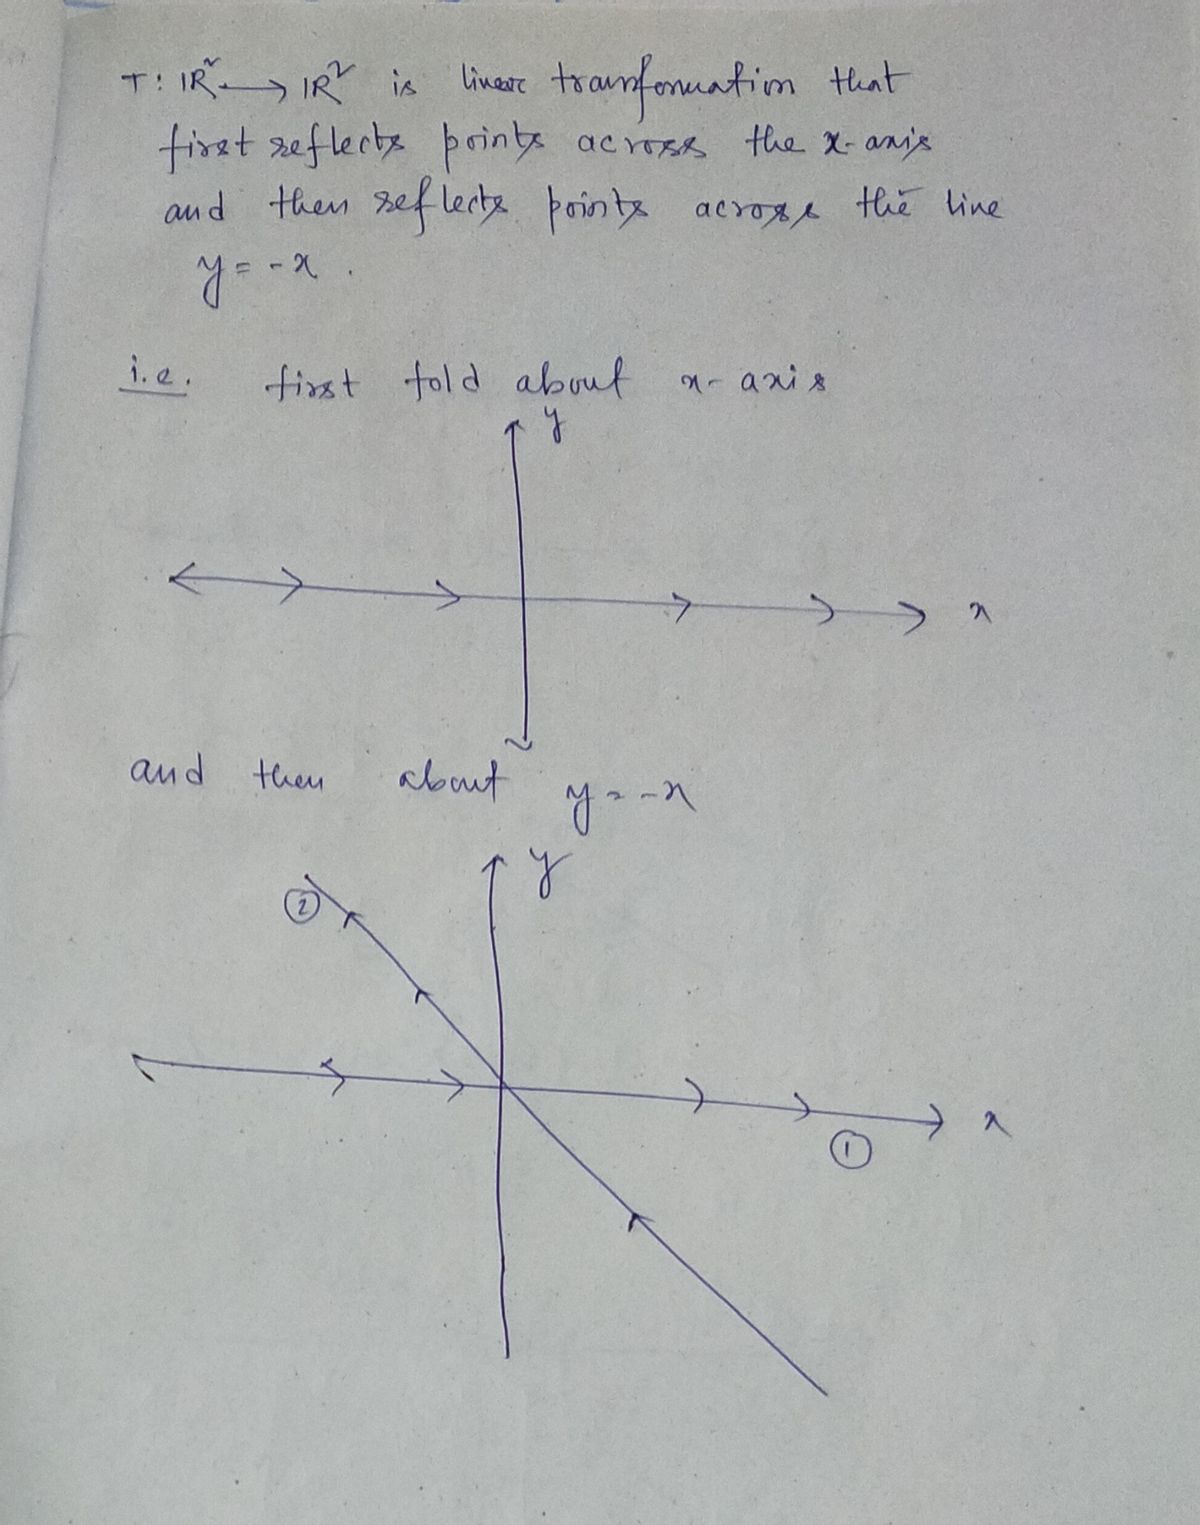 T: ℝ² → ℝ² is linear transformation that
first reflects points across the x-axis
and then reflects points across the line
y = -x .
i.e. first fold about x-axis
y
x
and then about y = -x
y
②
x
①